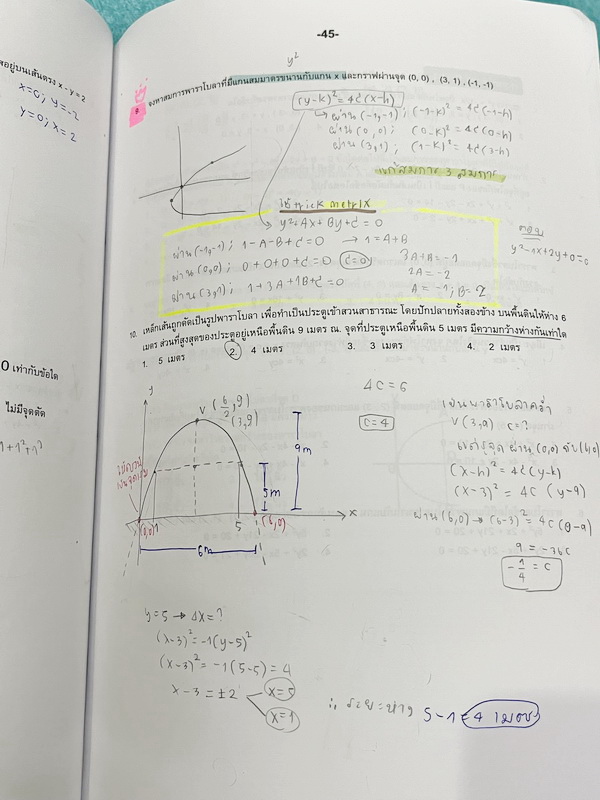 -45-
y²
9. จงหาสมการพาราโบลาที่มีแกนสมมาตรขนานกับแกน x และกราฟผ่านจุด (0, 0) , (3, 1) , (-1, -1)
(y-k)² = 4c(x-h)
ผ่าน (-1,-1) ; (-1-k)² = 4c(-1-h)
ผ่าน (0,0) ; (0-k)² = 4c(0-h)
ผ่าน (3,1) ; (1-k)² = 4c(3-h)
แก้สมการ 3 สมการ
ใช้ trick metrix
y²+Ax+By+C=0
ผ่าน (-1,-1) ; 1-A-B+C=0 → 1=A+B
ผ่าน (0,0) ; 0+0+0+C=0 C=0
ผ่าน (3,1) ; 1+3A+1B+C=0
3A+B=-1
2A=-2
A=-1; B=2
ตอบ
y²-1x+2y+0=0
10. เหล็กเส้นถูกดัดเป็นรูปพาราโบลา เพื่อทำเป็นประตูเข้าสวนสาธารณะ โดยปักปลายทั้งสองข้าง บนพื้นดินให้ห่าง 6
เมตร ส่วนที่สูงสุดของประตูอยู่เหนือพื้นดิน 9 เมตร ณ. จุดที่ประตูเหนือพื้นดิน 5 เมตร มีความกว้างห่างกันเท่าใด
1. 5 เมตร 2. 4 เมตร 3. 3 เมตร 4. 2 เมตร
4C=6
C=4
y
V (6/2, 9)
(3,9)
9m
5m
(0,0) 1 5 (6,0) x
6m
เป็นพาราโบลาคว่ำ
V(3,9) c=?
แต่รู้จุดผ่าน (0,0) กับ (6,0)
(x-h)² = 4c(y-k)
(x-3)² = 4c(y-9)
ผ่าน (6,0) → (6-3)² = 4c(0-9)
9 = -36c
-1/4 = c
y=5 → Δx=?
(x-3)² = -1(y-5)²
(x-3)² = -1(5-5) = 4
x-3 = ±2
x=5
x=1
∴ ระยะห่าง 5-1=4 เมตร
สอยู่บนเส้นตรง x - y = 2
x=0; y=-2
y=0; x=2
0 เท่ากับข้อใด
ไม่มีจุดตัด